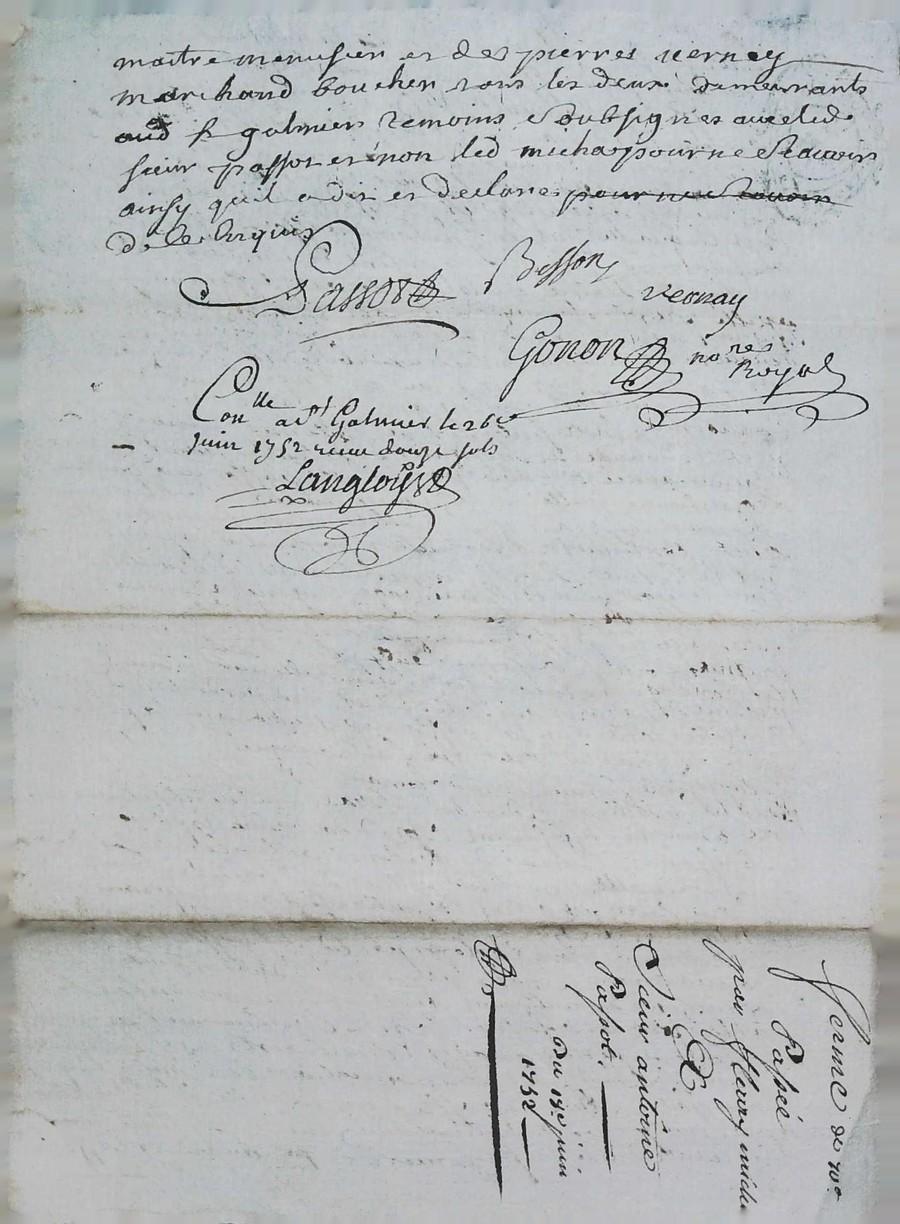 maitre menusier et de pierres vernay
marchand boucher tous les deux demeurants
aud St galmier temoins Soubsignes avec led
sieur passot et non led micha pour ne Scavoir
ainsy quil a dit et declaré pour ne Scavoir
de ce Enquis
Passot Besson
vernay
Gonon nore
Royal
Conlle a St Galmier le 26e
Juin 1752 receu douze sols
Langloys
ferme de
Passé
par fleury micha
Et
Sieur antoine
Passot.
Du 15e juin
1752